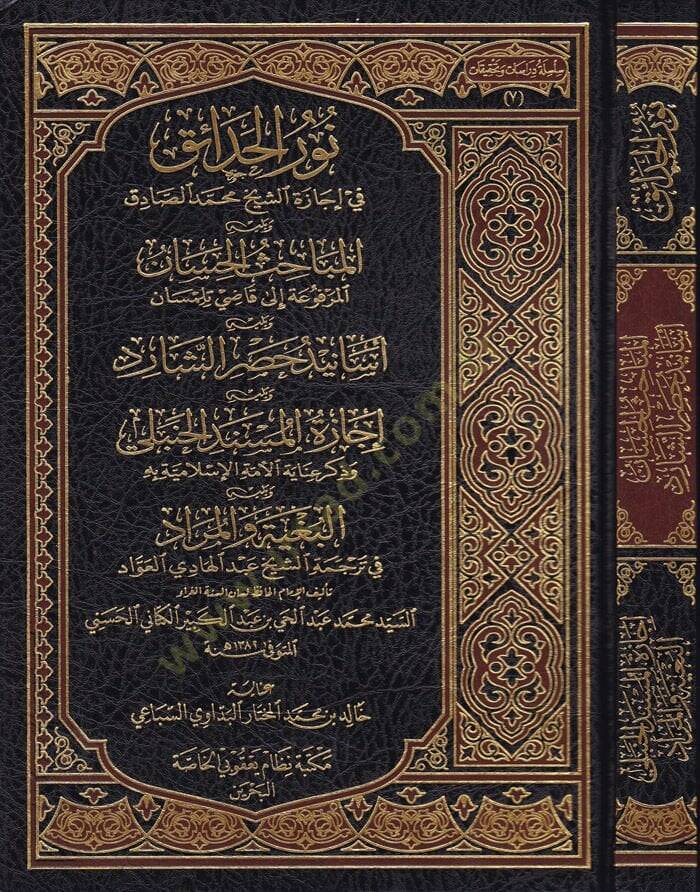 سلسلة دراسات وتحقيقات
(٧)
نور الحدائق
في إجازة الشيخ محمد الصادق
ويليه
المباحث الحسان
المرفوعة إلى قاضي تلمسان
ويليه
أسانيد حصر الشارد
ويليه
إجازة المسند الحنبلي
وذكر عناية الأمة الإسلامية به
ويليه
البغية والمراد
في ترجمة الشيخ عبد الهادي العواد
تأليف الإمام الحافظ لسان السنة الغراء
السيد محمد عبد الحي بن عبد الكبير الكتاني الحسني
المتوفى سنة ١٣٨٢هـ
عناية
خالد بن محمد المختار البداوي السباعي
مكتبة نظام يعقوبي الخاصة
البحرين
نور الحدائق
المباحث الحسان
أسانيد حصر الشارد
إجازة المسند الحنبلي
البغية والمراد